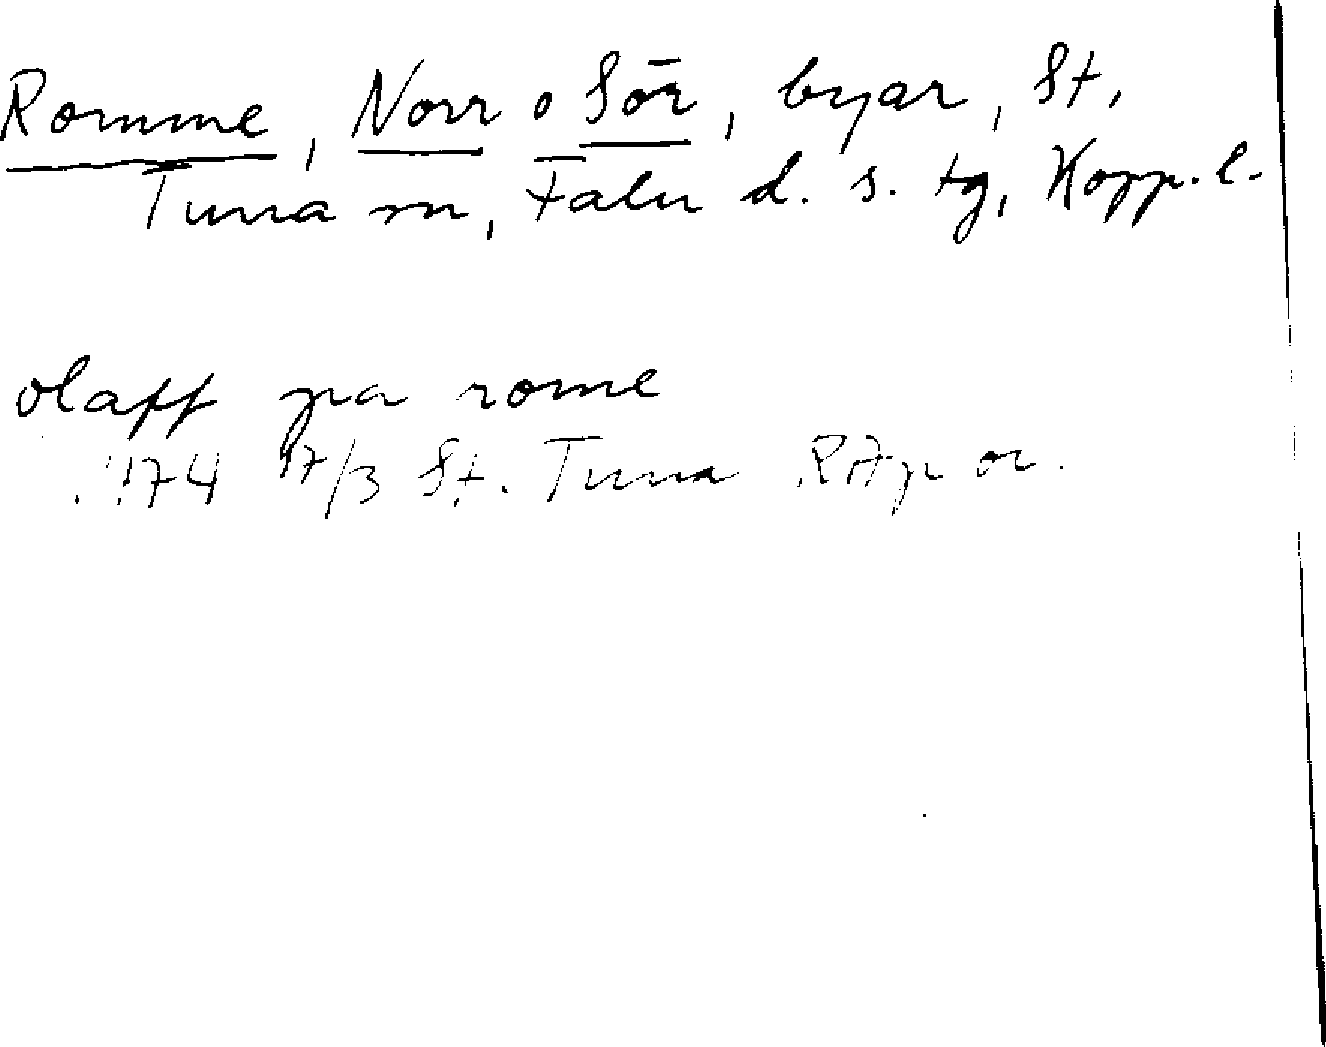 Romme, Norr o Sör, byar, St.
Tuna sn, Falu d. s. tg, Kopp. l.
olaff pa rome
1474 17/3 St. Tuna RAp or.